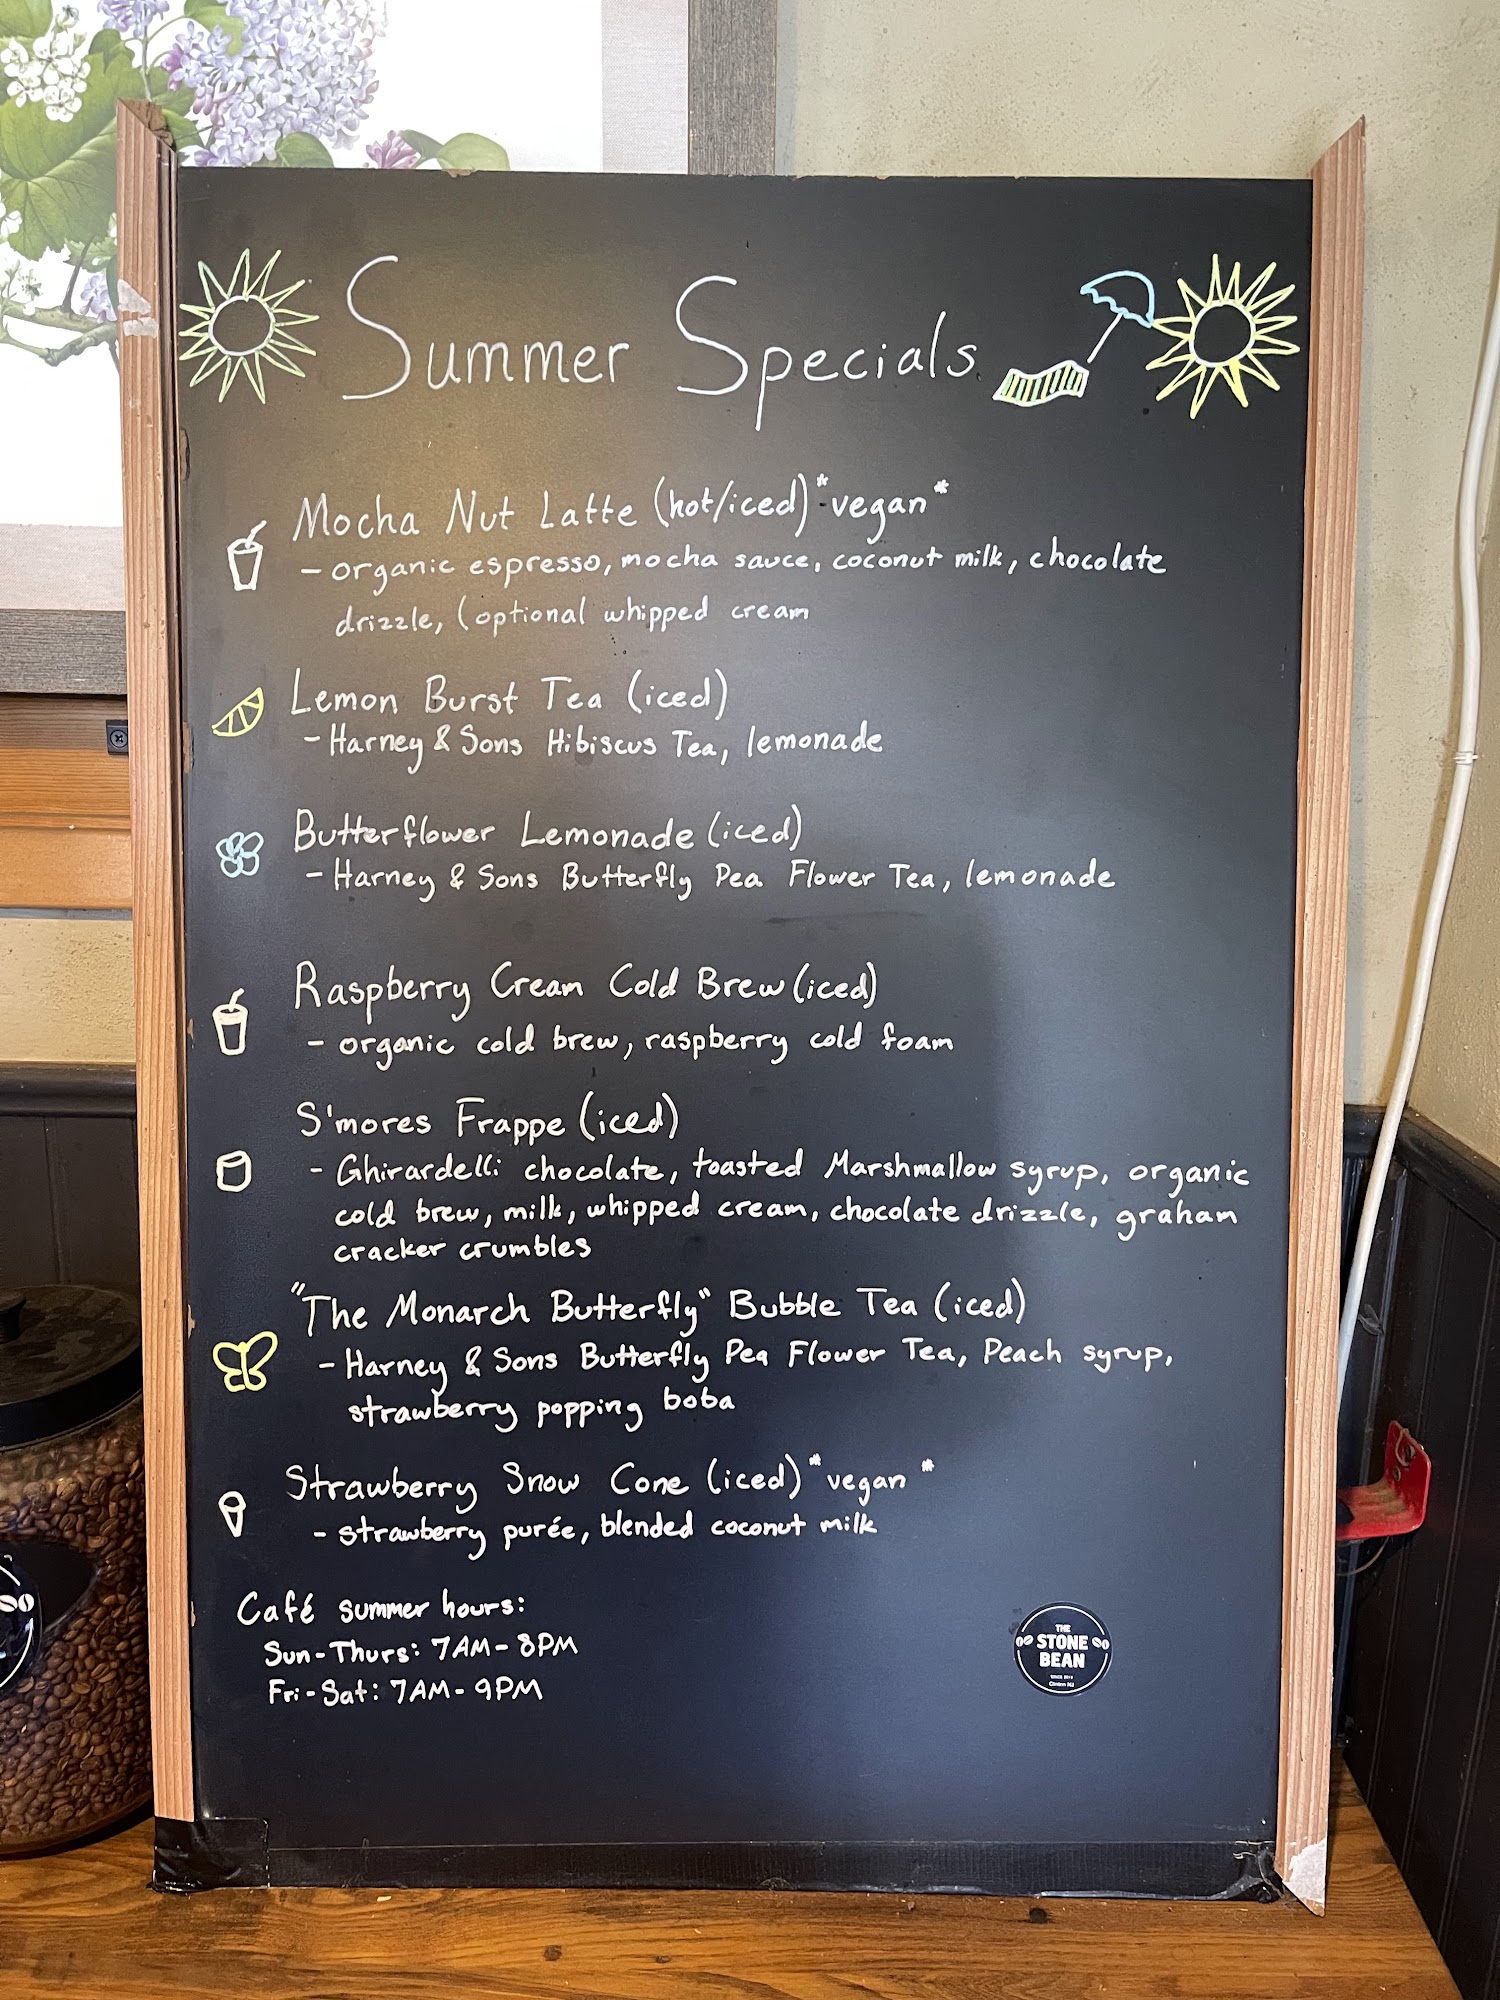 Summer Specials
Mocha Nut Latte (hot/iced) *vegan*
- organic espresso, mocha sauce, coconut milk, chocolate
drizzle, (optional whipped cream
Lemon Burst Tea (iced)
- Harney & Sons Hibiscus Tea, lemonade
Butterflower Lemonade (iced)
- Harney & Sons Butterfly Pea Flower Tea, lemonade
Raspberry Cream Cold Brew (iced)
- organic cold brew, raspberry cold foam
S'mores Frappe (iced)
- Ghirardelli chocolate, toasted Marshmallow syrup, organic
cold brew, milk, whipped cream, chocolate drizzle, graham
cracker crumbles
"The Monarch Butterfly" Bubble Tea (iced)
- Harney & Sons Butterfly Pea Flower Tea, Peach syrup,
strawberry popping boba
Strawberry Snow Cone (iced) *vegan*
- strawberry purée, blended coconut milk
Café summer hours:
Sun-Thurs: 7AM-8PM
Fri-Sat: 7AM-9PM
THE
STONE
BEAN
Clinton NJ